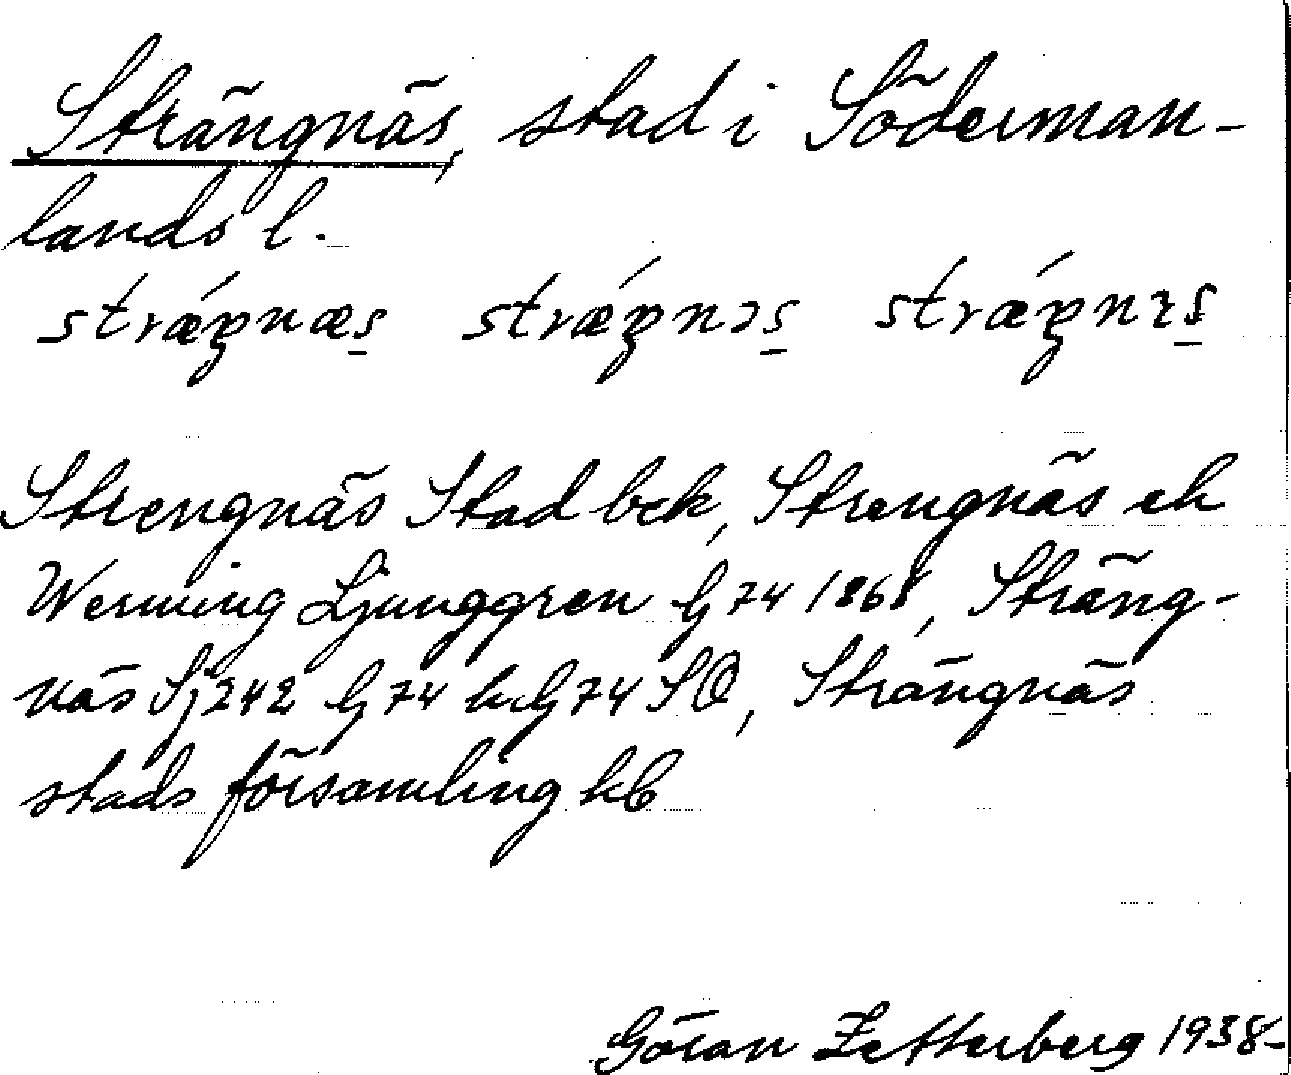 Strängnäs, stad i Söderman-
lands l.
strǽŋnæs strǽŋnɔs strǽŋnɿs
Strengnäs Stad bek, Strengnäs ek
Werming Ljunggren G 74 1868, Sträng-
näs Sj 242 G 74 h.G 74 SO, Strängnäs
stads församling kb
Göran Zetterberg 1938-